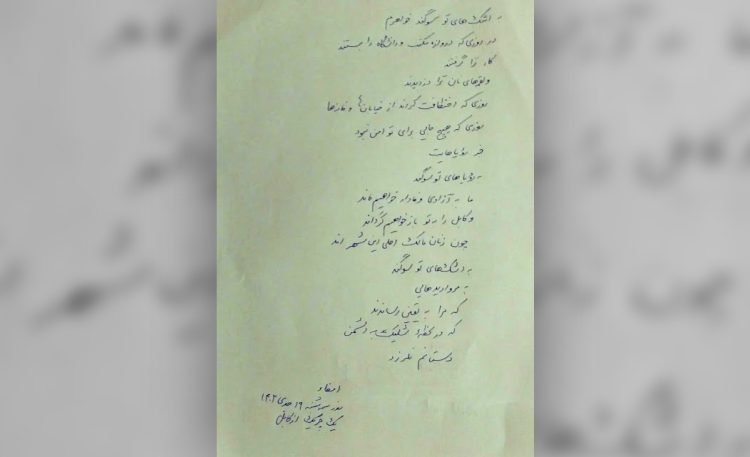 به اشک های تو سوگند خواهرم
در روزی که دروازه مکتب و دانشگاه را بستند
کار ترا گرفتند
و لقمه‌های نان ترا دزدیدند
روزی که اختطافت کردند از خیابان‌ها
روزی که هیچ جایی برای تو امن نبود
جز رؤیاهایت
به رؤیاهای تو سوگند
ما به آزادی وفادار خواهیم ماند
و کابل را به تو باز خواهیم گرداند
چون زنان مالک اصلی این شهر اند
به اشک‌های تو سوگند
به مرواریدهایی
که مرا به یقین رساندند
که در لحظهٔ شلیک به دشمن
دستانم نلرزد
امضاء
روز سه شنبه ۱۹ جدی ۱۴۰۲
یک چریک از کابل